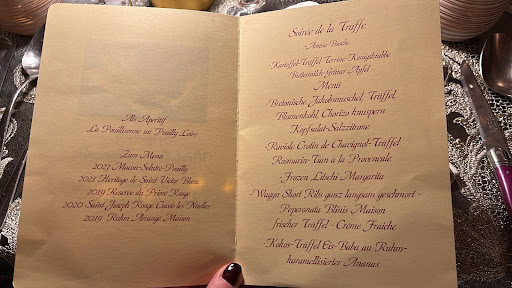 Als Aperitif
La Pouillsonne sur Pouilly Loire
Zum Menü
2021 Macon-Solutre-Pouilly
2021 Heritage de Saint Victor Blanc
2019 Reserve du Prieure Rouge
2020 Saint Joseph Rouge Cuvée les Nöelles
2019 Ruhm Arrange Maison
Soiree de la Truffe
-Amuse Buche
-Kartoffel-Trüffel Terrine-Königskrabbe
Buttermilch-Grüner Apfel
Menü
-Bretonische Jakobsmuschel, Trüffel,
Blumenkohl, Chorizo knuspern
Kopfsalat-Salzzitrone
-Raviole Crotin de Chavignol-Trüffel
Rosmarin-Tian a la Provencale
-Frozen Litschi Margarita
-Wagyu Short Ribs ganz langsam geschmort -
Peperonata Blinis Maison
frischer Trüffel - Crème Fraîche
-Kakao-Trüffel Eis-Baba au Ruhm-
karamellisierter Ananas